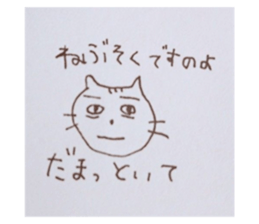 ねぶそくですのよ
だまっといて